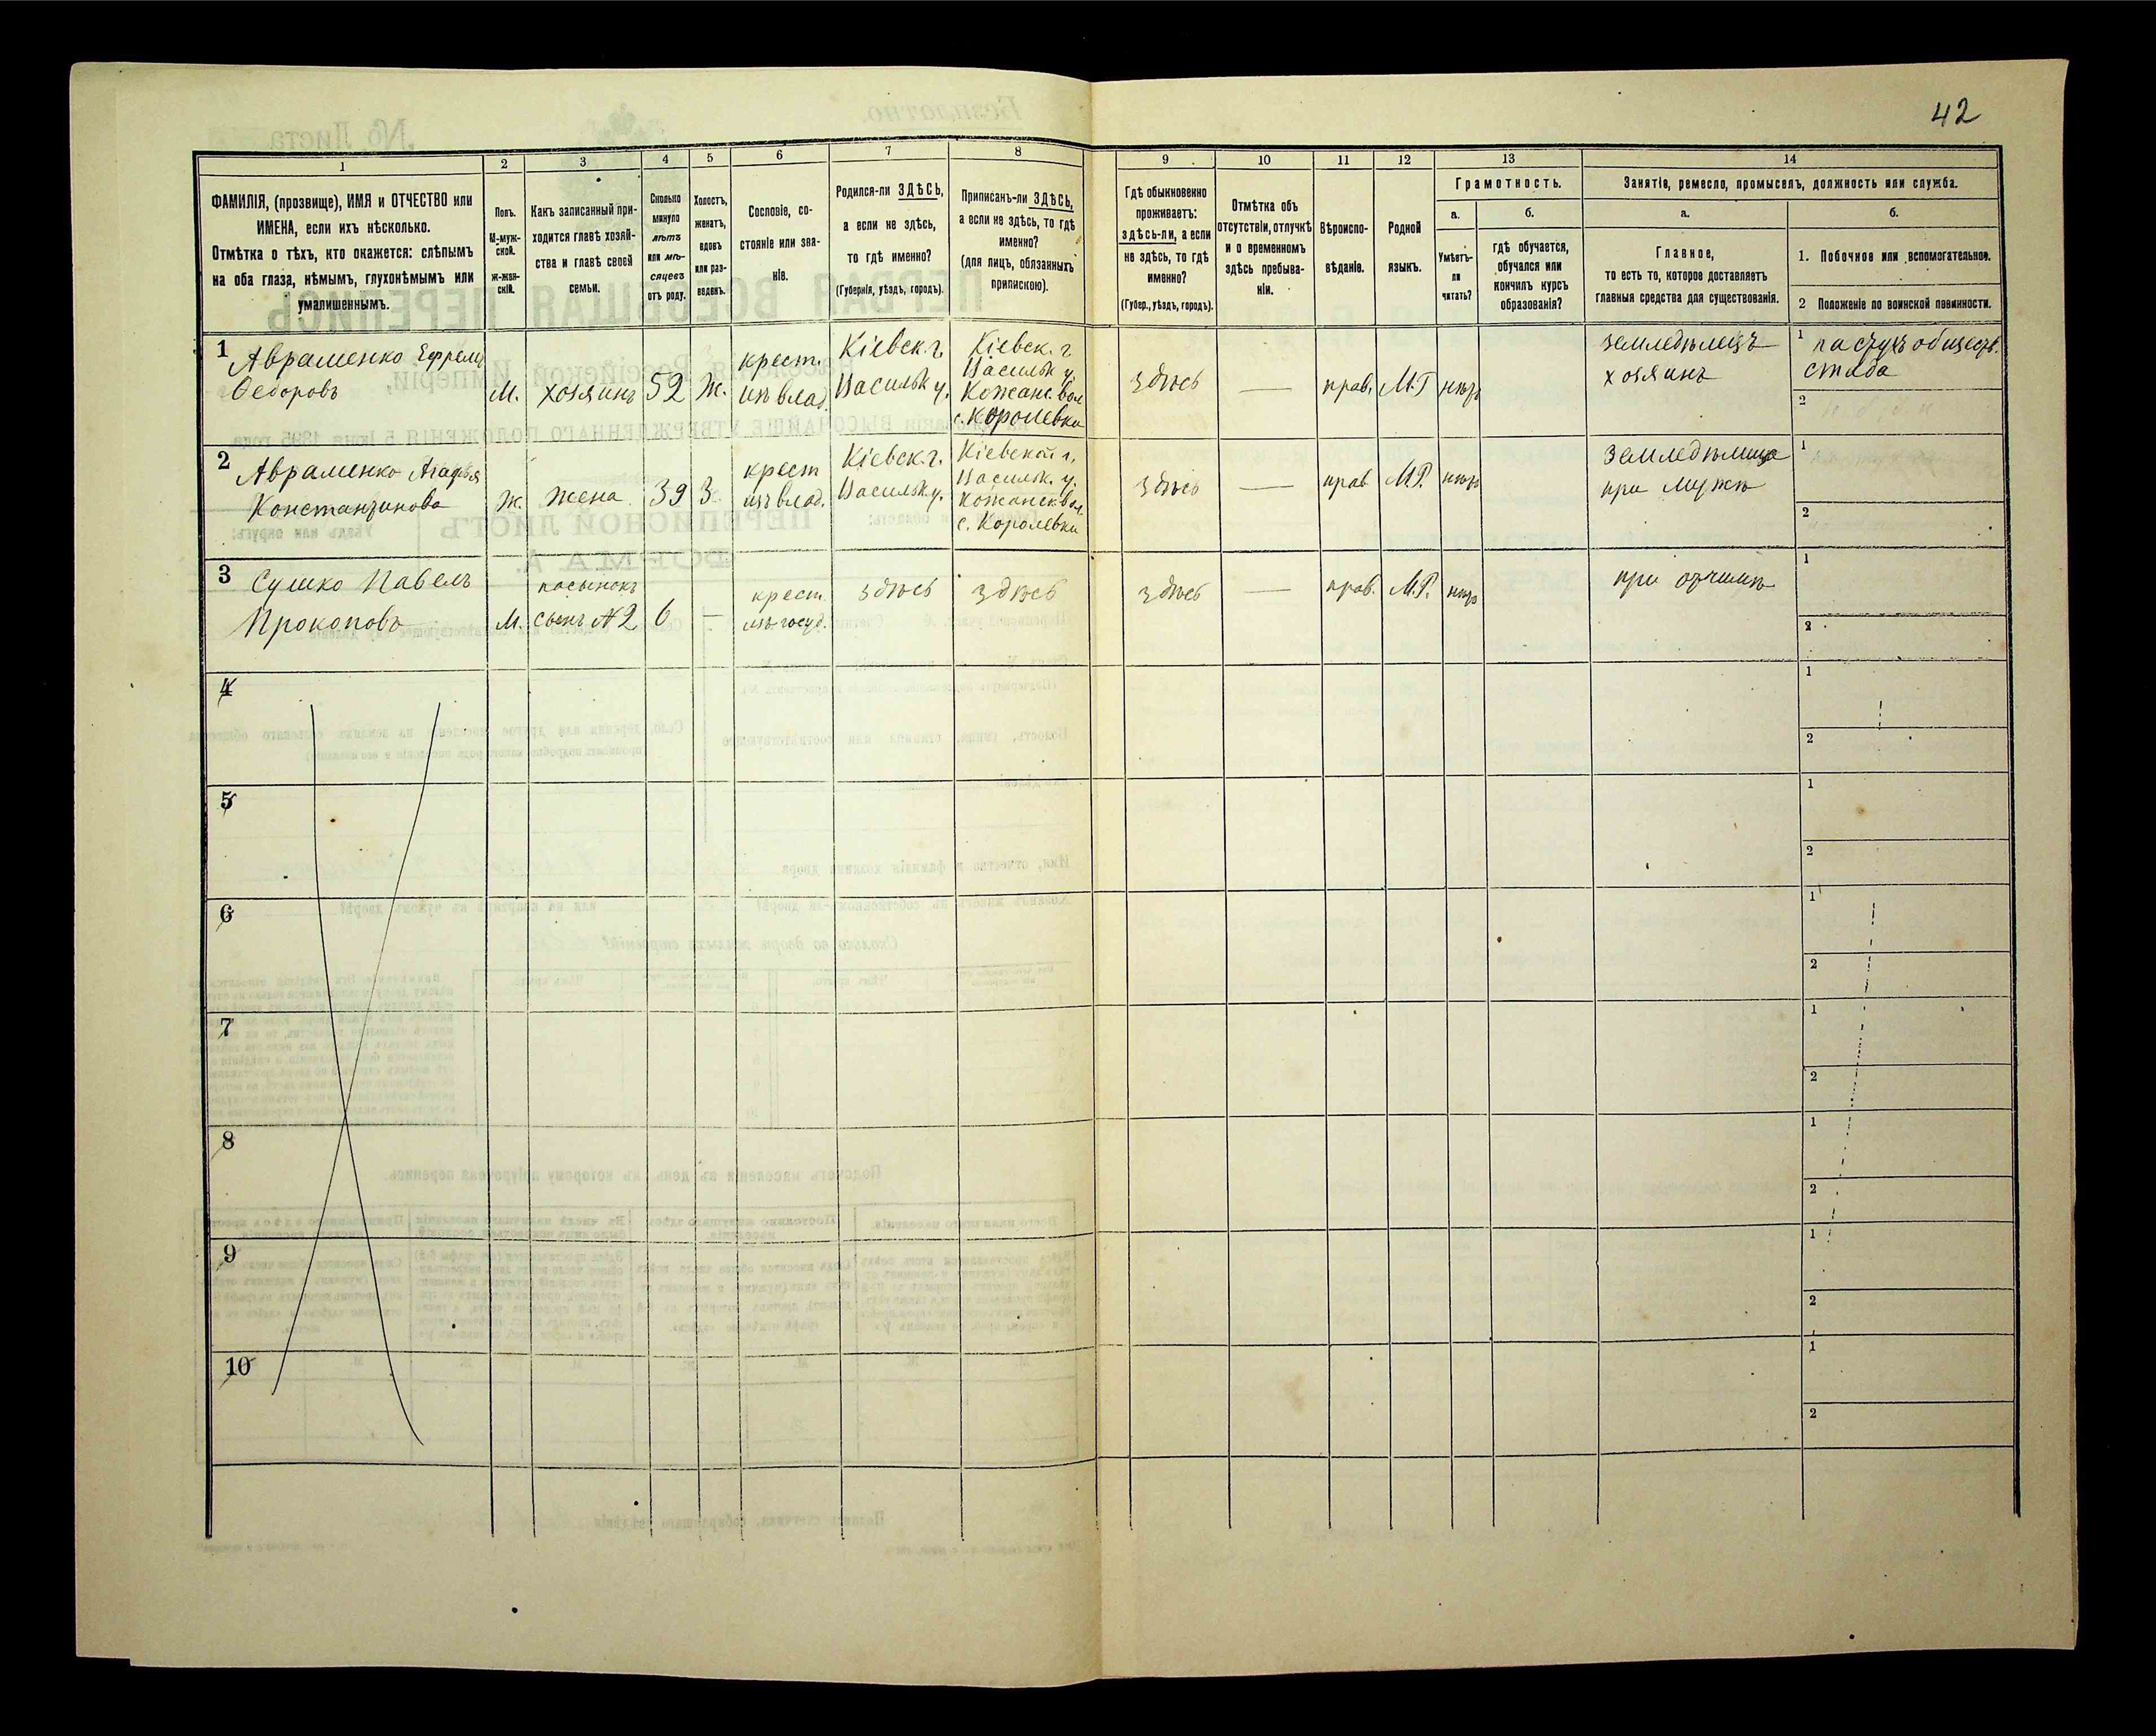 42
1
2
3
4
5
6
7
8
9
10
11
12
13
14
ФАМИЛІЯ, (прозвище), ИМЯ и ОТЧЕСТВО или
ИМЕНА, если ихъ нѣсколько.
Отмѣтка о тѣхъ, кто окажется: слѣпымъ
на оба глаза, нѣмымъ, глухонѣмымъ или
умалишеннымъ.
Полъ.
М-муж-
ской.
ж-жен-
скій.
Какъ записанный при-
ходится главѣ хозяй-
ства и главѣ своей
семьи.
Сколько
минуло
лѣтъ
или мѣ-
сяцевъ
отъ роду.
Холостъ,
женатъ,
вдовъ
или раз-
веденъ.
Сословіе, со-
стояніе или зва-
ніе.
Родился-ли ЗДѢСЬ,
а если не здѣсь,
то гдѣ именно?
(Губернія, уѣздъ, городъ).
Приписанъ-ли ЗДѢСЬ,
а если не здѣсь, то гдѣ
именно?
(для лицъ, обязанныхъ
припискою).
Гдѣ обыкновенно
проживаетъ:
здѣсь-ли, а если
не здѣсь, то гдѣ
именно?
(Губер., уѣздъ, городъ).
Отмѣтка объ
отсутствіи, отлучкѣ
и о временномъ
здѣсь пребыва-
ніи.
Вѣроиспо-
вѣданіе.
Родной
языкъ.
Грамотность.
а.
б.
Умѣетъ-
ли
читать?
гдѣ обучается,
обучался или
кончилъ курсъ
образованія?
Занятіе, ремесло, промыселъ, должность или служба.
а.
б.
Главное,
то есть то, которое доставляетъ
главныя средства для существованія.
1. Побочное или вспомогательное.
2 Положеніе по воинской повинности.
1
Авраменко Ефремъ
Ѳедоровъ
М.
хозяинъ
52
Ж.
крест.
изъ влад.
Кіевск. г.
Васильк у.
Кіевск. г
Васильк у.
Кожанс. вол
с. Королевки
здѣсь
—
прав.
М.Р
нѣтъ
земледѣлецъ
хозяинъ
1
пастухъ обществ.
стада
2
2
Авраменко Агафья
Константинова
Ж.
жена
39
З.
крест
изъ влад.
Кіевск. г.
Васильк. у.
Кіевской г.
Васильк. у.
Кожанск. вол.
с. Королевки
здѣсь
—
прав
М.Р.
нѣтъ
земледѣлица
при мужѣ
1
2
3
Сушко Павелъ
Прокоповъ
М.
пасынокъ
сынъ №2
6
—
крест.
изъ госуд.
здѣсь
здѣсь
здѣсь
—
прав.
М.Р.
нѣтъ
при отчимѣ
1
2
4
1
2
5
1
2
6
1
2
7
1
2
8
1
2
9
1
2
10
1
2